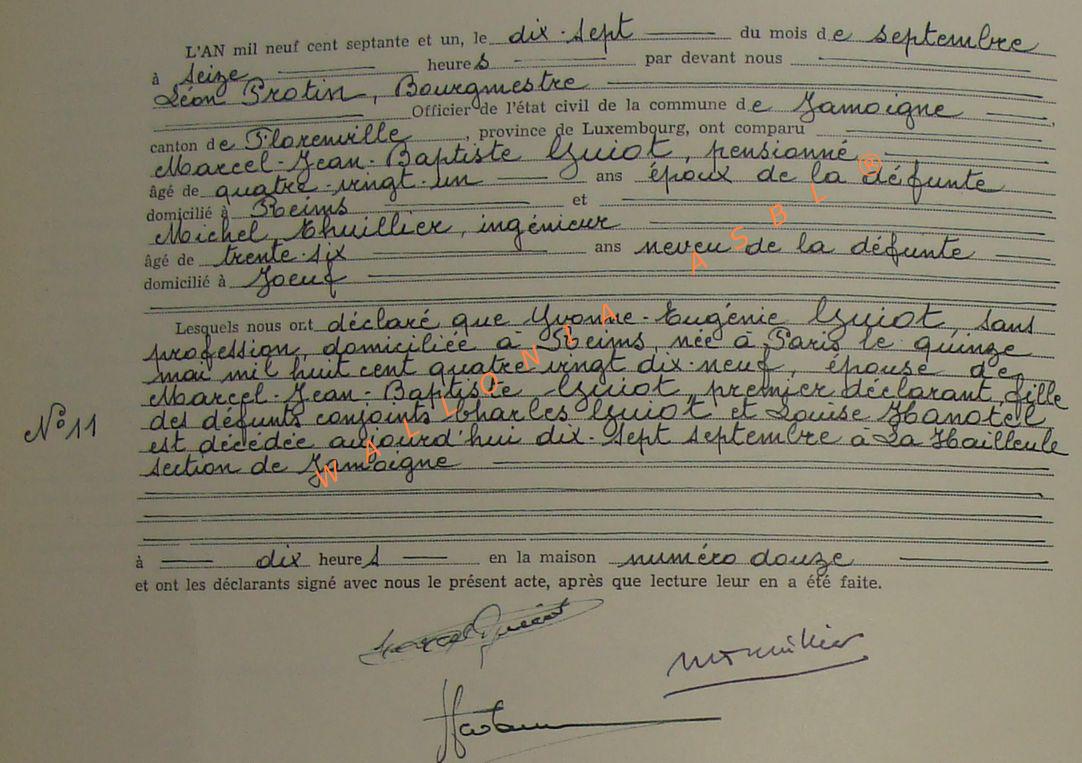 L'AN mil neuf cent septante et un, le dix-sept du mois de septembre
à seize heures par devant nous
Léon Protin, Bourgmestre
Officier de l'état civil de la commune de Jamoigne,
canton de Florenville, province de Luxembourg, ont comparu
Marcel-Jean-Baptiste Guiot, pensionné
âgé de quatre-vingt-un ans époux de la défunte
domicilié à Reims et
Michel Thuillier, ingénieur
âgé de trente-six ans neveu de la défunte
domicilié à Joeuf
Lesquels nous ont déclaré que Yvonne-Eugénie Guiot, sans
profession, domiciliée à Reims, née à Paris le quinze
mai mil huit cent quatre-vingt dix-neuf, épouse de
Marcel-Jean-Baptiste Guiot, premier déclarant, fille
des défunts conjoints Charles Guiot, et Louise Hanotel
N° 11
est décédée aujourd'hui dix-sept septembre à La Hailleule
section de Jamoigne
à dix heures en la maison numéro douze
et ont les déclarants signé avec nous le présent acte, après que lecture leur en a été faite.
Marcel Guiot
WALLONIA ASBL ®